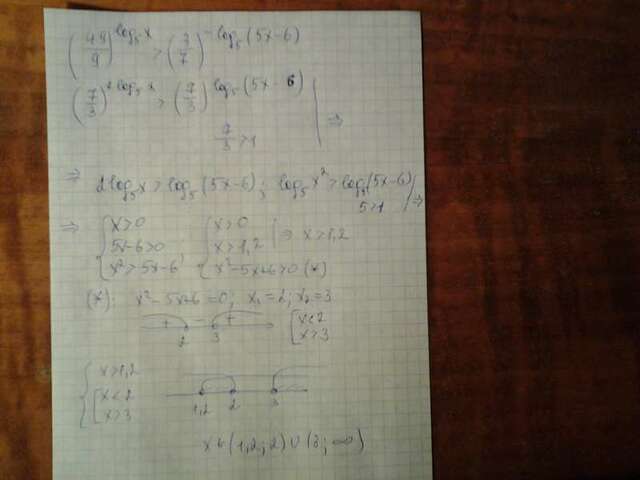 (49/9)^log₅x > (3/7)^-log₅(5x-6)
(7/3)^2log₅x > (7/3)^log₅(5x-6)
7/3 > 1 | ⇒
⇒ 2log₅x > log₅(5x-6); log₅x² > log₅(5x-6)
5>1 | ⇒
⇒ { x>0 { x>0
5x-6>0 ; x>1,2 | ⇒ x>1,2
x²>5x-6 x²-5x+6>0 (*)
(*): x²-5x+6=0; x₁=2; x₂=3
+ - + [ x<2
2 3 x>3
{ x>1,2
[ x<2
x>3
1,2 2 3
x∈(1,2;2)∪(3;∞)